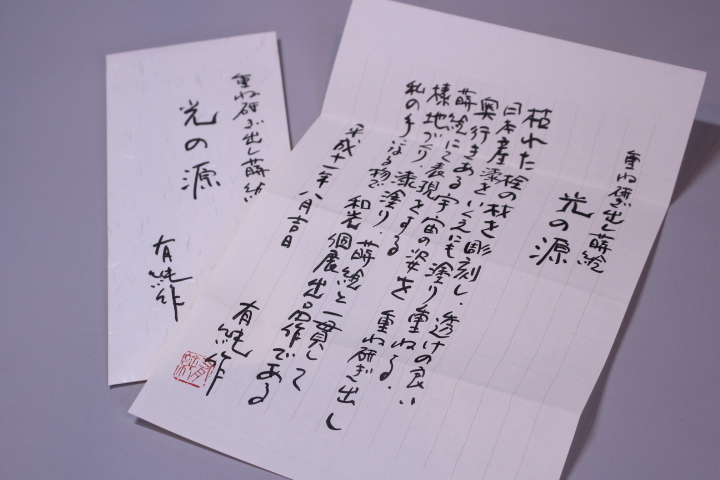 重ね研ぎ出し蒔絵
光の源
枯れた桧の材を彫刻し、透けの良い
日本産漆をいくえにも塗り重ねる、
奥行きある宇宙の姿を重ね研ぎ出し
蒔絵にて表現をする
榡地づくり漆塗り、蒔絵と一貫して
私の手になる物で和光個展出品作である
平成十一年八月吉日
有純作
重ね研ぎ出し蒔絵
光の源
有純作